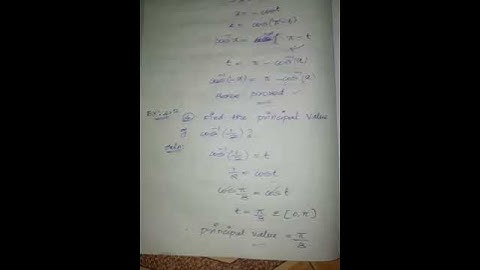 x = - cost
x = cos(π-t)
cos⁻¹x = π-t
t = π - cos⁻¹(x)
cos⁻¹(-x) = π - cos⁻¹(x)
Hence proved
② Find the principal value
of cos⁻¹(1/2) ?
Soln:
cos⁻¹(1/2) = t
1/2 = cost
cos π/3 = cos t
t = π/3 ∈ [0,π]
∴ principal value = π/3